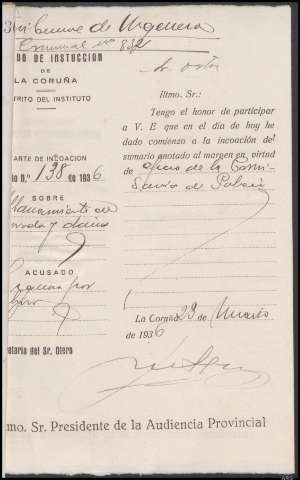 de Urgencia
Criminal nº 832
DO DE INSTUCCION
DE
LA CORUÑA
TRITO DEL INSTITUTO
ARTE DE INCOACION
io N.º 138 de 1936
SOBRE
llanamiento de
morada y daños
ACUSADO
por
etaría del Sr. Otero
Iltmo. Sr:
Tengo el honor de participar
a V. E que en el día de hoy he
dado comienzo a la incoación del
sumario anotado al margen en virtud
de oficio de la Comi
saría de Policía
La Coruña 23 de Marzo
de 1936
mo. Sr. Presidente de la Audiencia Provincial